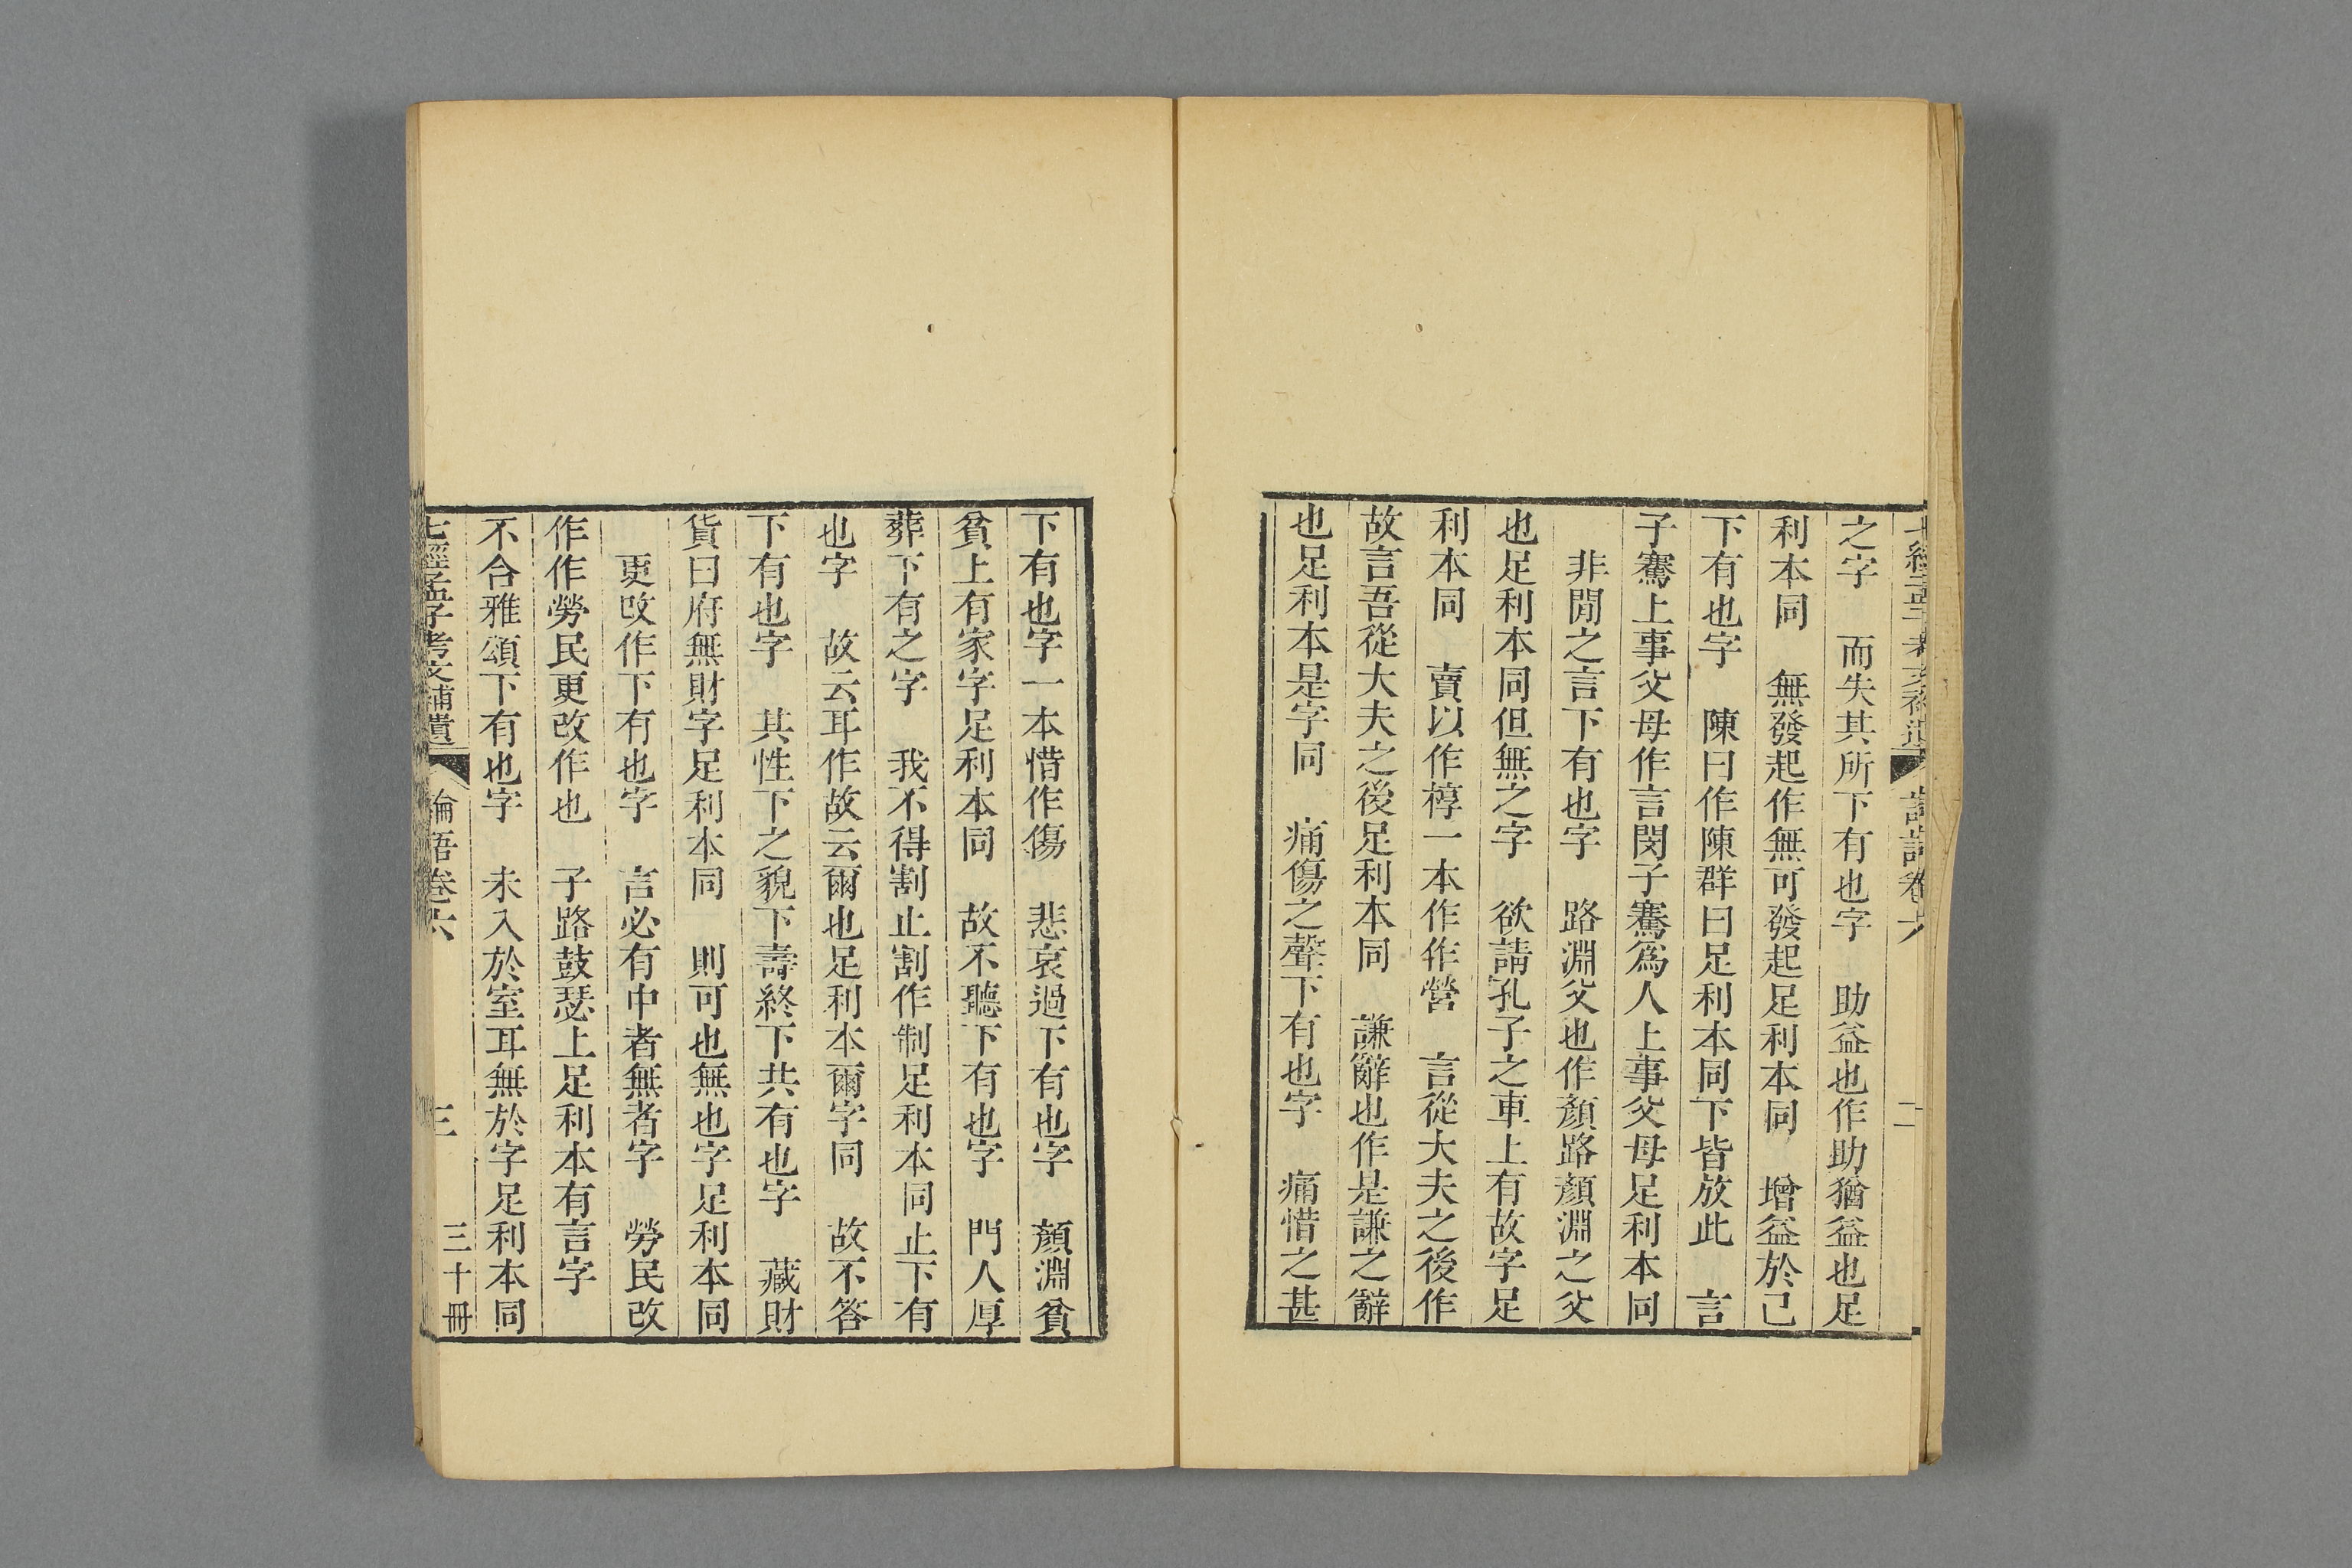 之字　而失其所下有也字　助益也作助猶益也足
利本同　無發起作無可發起足利本同　增益於己
下有也字　陳曰作陳群曰足利本同下皆放此　言
子騫上事父母作言閔子騫為人上事父母足利本同
非閒之言下有也字　路淵父也作顏路顏淵之父
也足利本同但無之字　欲請孔子之車上有故字足
利本同　賣以作椁一本作作營　言從大夫之後作
故言吾從大夫之後足利本同　謙辭也作是謙之辭
也足利本是字同　痛傷之聲下有也字　痛惜之甚
下有也字一本惜作傷　悲哀過下有也字　顏淵貧
貧上有家字足利本同　故不聽下有也字　門人厚
葬下有之字　我不得割止割作制足利本同止下有
也字　故云耳作故云爾也足利本爾字同　故不答
下有也字　其性下之貌下壽終下共有也字　藏財
貨曰府無財字足利本同　則可也無也字足利本同
更改作下有也字　言必有中者無者字　勞民改
作作勞民更改作也　子路鼓瑟上足利本有言字
不合雅頌下有也字　未入於室耳無於字足利本同
七經孟子考文補遺　論語卷六　三　三十冊